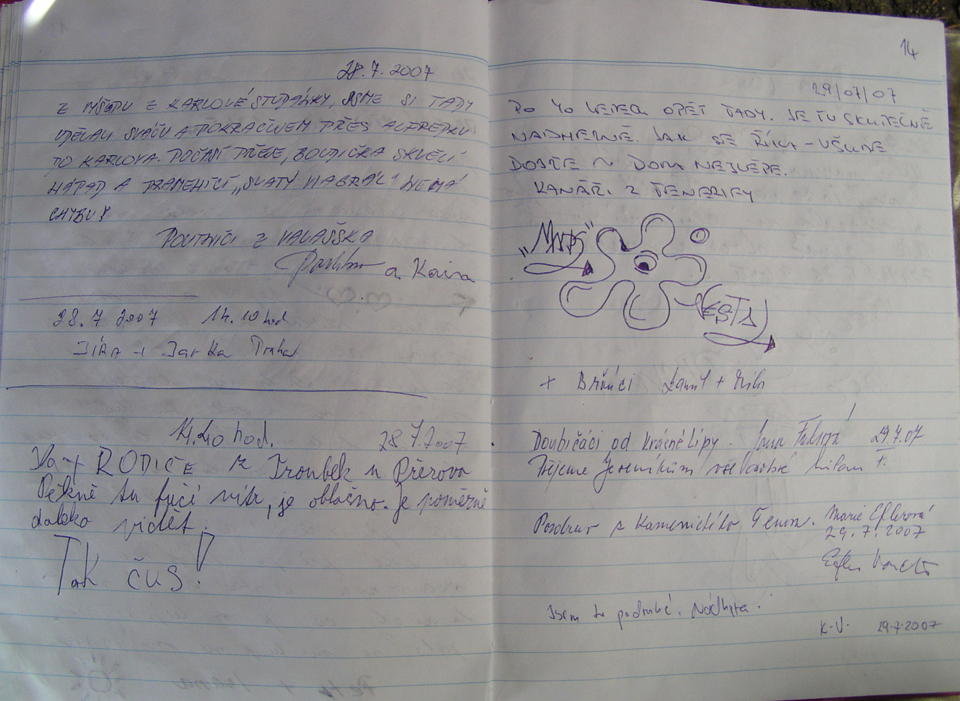 28.7.2007
Z VÝŠLAPU Z KARLOVÉ STUDÁNKY, JSME SI TADY
UDĚLALI SVAČU A POKRAČUJEM PŘES ALFRÉDKU
DO KARLOVA. POČASÍ PŘEJE, BOUDIČKA SKVĚLÍ
NÁPAD, A PRAMENÍCÍ „SVATÝ GRÁL" NEMÁ
CHYBU!
POUTNÍCI Z VALAŠSKA
a
28.7 2007 14.10 hod
JÍRA + Jarka Praha
14.40 hod. 28 7.2007
RODIČE z Troubek u Přerova
Pěkně tu fučí vítr, je oblačno. Je poměrně
daleko vidět!
Tak čus!
14
29/07/07
PO 40 LETECH OPĚT TADY. JE TU SKUTEČNĚ
NÁDHERNĚ. JAK SE ŘÍKÁ - VŠUDE
DOBŘE DOMA NEJLÉPE.
KANÁŘI Z TENERIFY
+ Bráňci
Doubičáci od Krásné Lípy. Jana 29.7.07
Přejeme Jeseníkům
Pozdrav z Kamenického Šenova. Marie Eflerová
29.7.2007
Jsem tu podruhé. Nádhera.
K.V. 29.7.2007